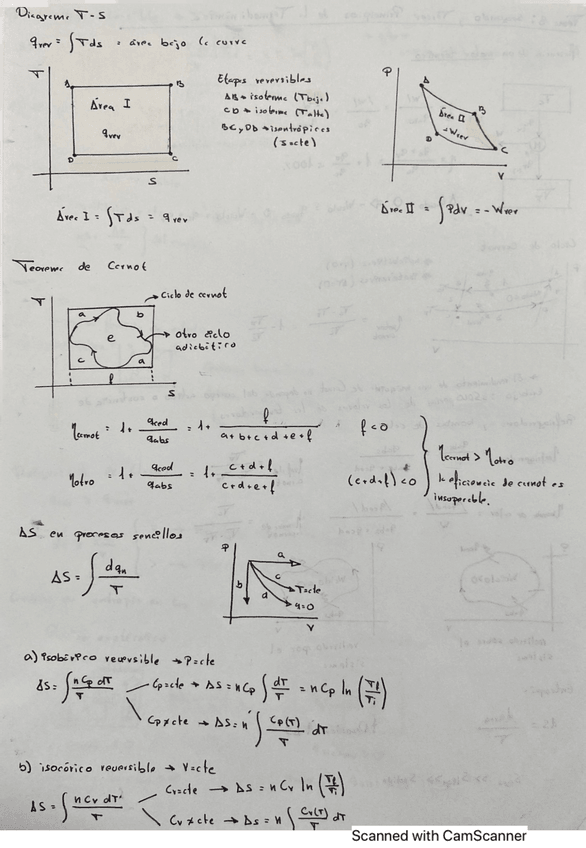 Diagrama T-S
qrev = ∫Tds = área bajo la curva
T
A
B
Área I
qrev
D
C
S
Etapas reversibles
AB → isoterma (Tbaja)
CD → isoterma (Talta)
BC y DA → isentrópicas
(s=cte)
P
A
B
Área II
-Wrev
D
C
V
Área I = ∫Tds = qrev
Área II = ∫PdV = -Wrev
Teorema de Carnot
T
a
b
e
c
a
f
S
Ciclo de carnot
otro ciclo
adiabático
ηcarnot = 1 + qced/qabs = 1 + f/(a+b+c+d+e+f)
f<0
ηotro = 1 + qced/qabs = 1 + (c+d+f)/(c+d+e+f)
(c+d+f)<0
ηcarnot > ηotro
la eficiencia de carnot es
insuperable.
ΔS en procesos sencillos
ΔS = ∫ dqn/T
P
a
b
c
d
T=cte
q=0
V
a) isobárico reversible → P=cte
ΔS = ∫ nCp dT/T
Cp=cte → ΔS = nCp ∫ dT/T = nCp ln (Tf/Ti)
Cp≠cte → ΔS = n ∫ Cp(T)/T dT
b) isocórico reversible → V=cte
ΔS = ∫ nCv dT/T
Cv=cte → ΔS = nCv ln (Tf/Ti)
Cv≠cte → ΔS = n ∫ Cv(T)/T dT
Scanned with CamScanner